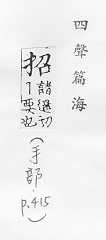 四聲篇海
招 諸遙切丨要也(手部.p.415)